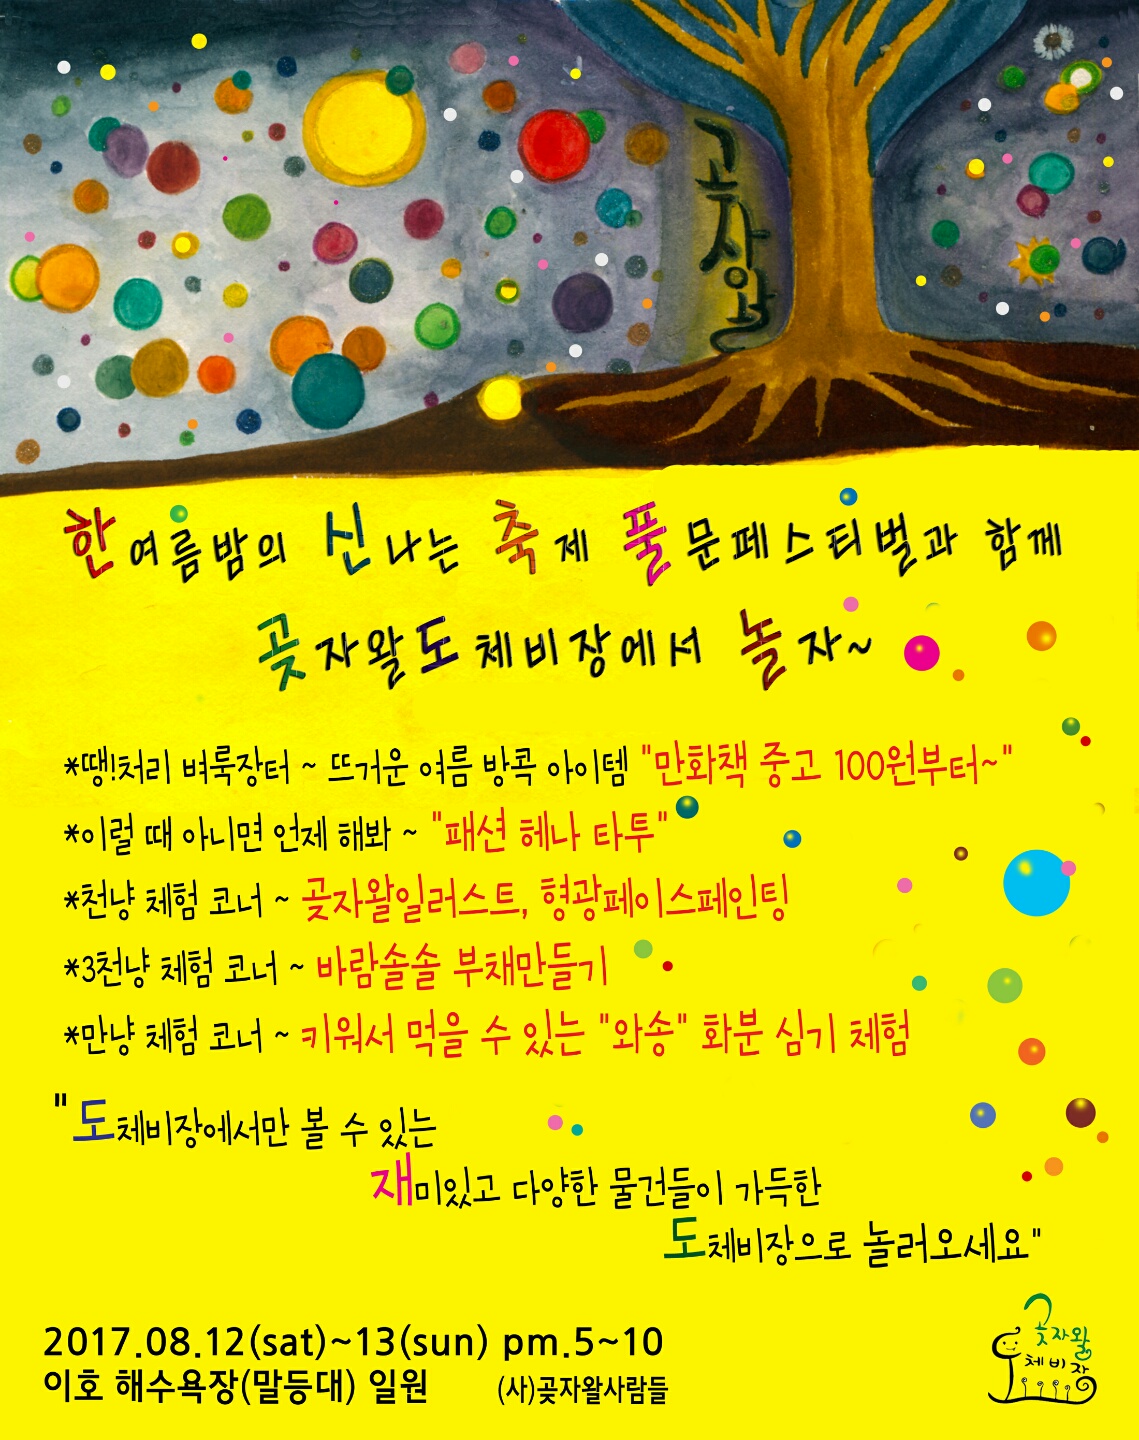 곶자왈
한여름밤의 신나는 축제 풀문페스티벌과 함께
곶자왈도체비장에서 놀자~
*땡!처리 벼룩장터 ~ 뜨거운 여름 방콕 아이템 "만화책 중고 100원부터~"
*이럴 때 아니면 언제 해봐 ~ "패션 헤나 타투"
*천냥 체험 코너 ~ 곶자왈일러스트, 형광페이스페인팅
*3천냥 체험 코너 ~ 바람솔솔 부채만들기
*만냥 체험 코너 ~ 키워서 먹을 수 있는 "와송" 화분 심기 체험
"도체비장에서만 볼 수 있는
재미있고 다양한 물건들이 가득한
도체비장으로 놀러오세요"
2017.08.12(sat)~13(sun) pm.5~10
이호 해수욕장(말등대) 일원 (사)곶자왈사람들
곶자왈
체비장